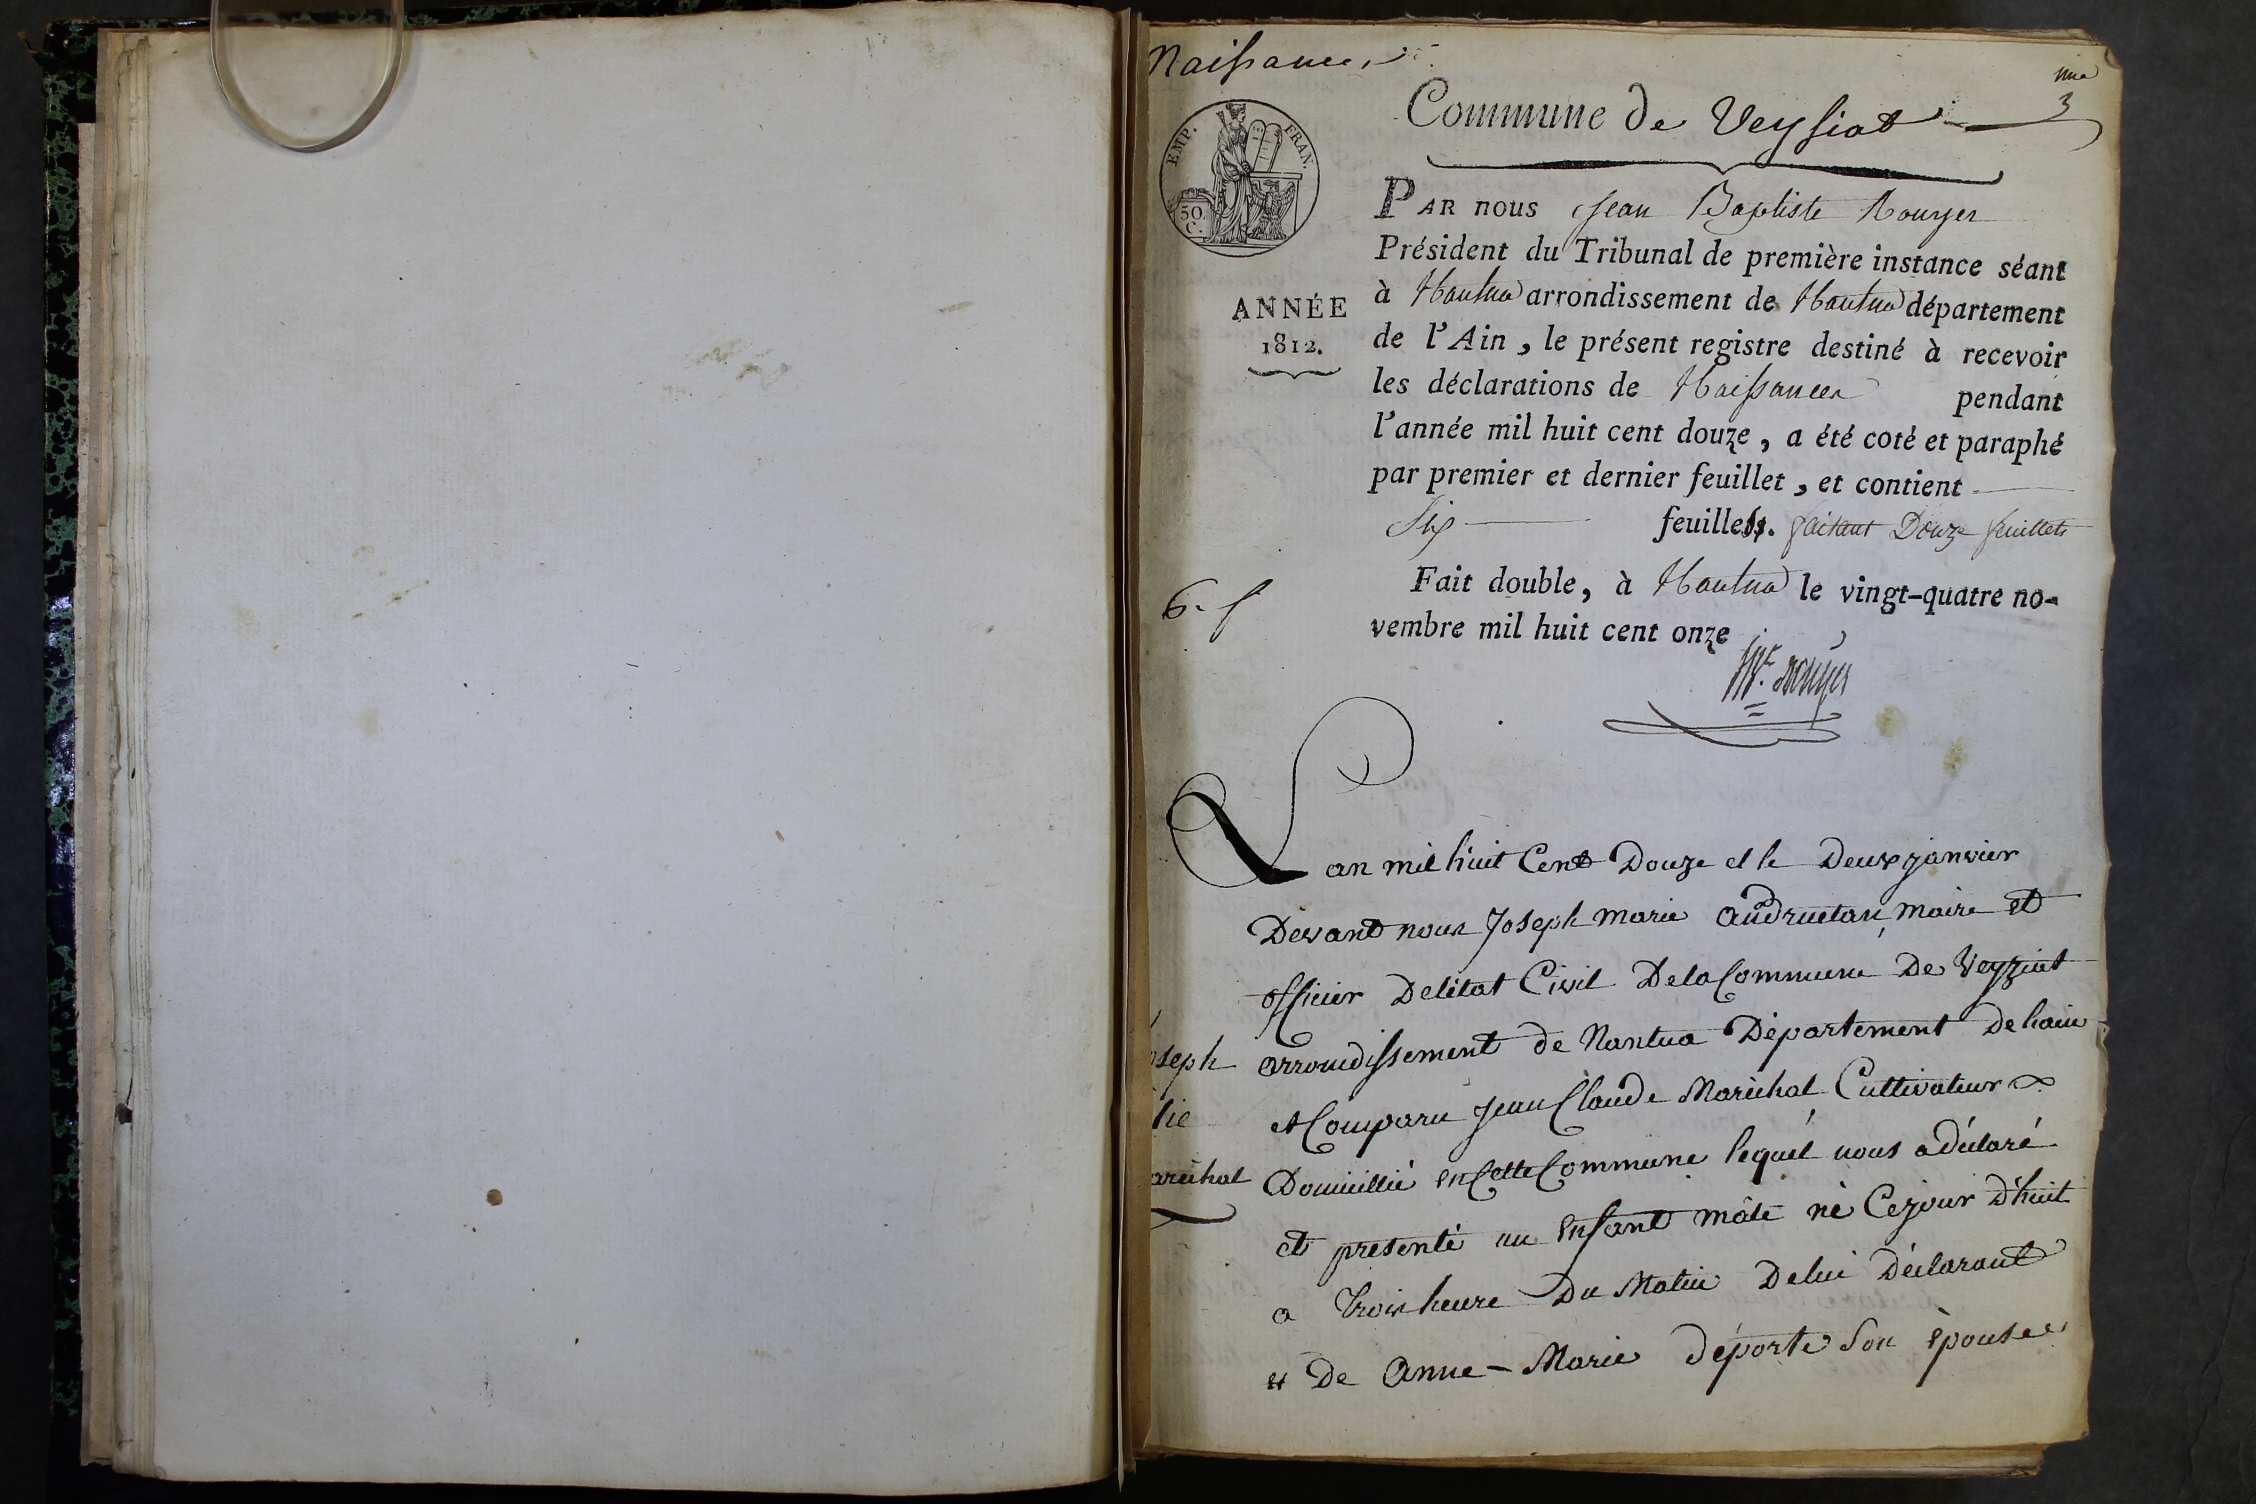 Naissances
une
3
Commune de Veysiat
EMP. FRAN.
50.
C.
PAR nous Jean Baptiste Rouyer
Président du Tribunal de première instance séant
à Nantua arrondissement de Nantua département
ANNÉE
1812.
de l'Ain, le présent registre destiné à recevoir
les déclarations de Naissances pendant
l'année mil huit cent douze, a été coté et paraphé
par premier et dernier feuillet, et contient
Six feuilles. faisant Douze feuillets
Fait double, à Nantua le vingt-quatre no-
vembre mil huit cent onze
6. f
Rouyer
Lan mil huit Cent Douze et le Deux janvier
Devant nous Joseph marie audruetan, maire et
officier Deletat Civil Dela Commune De Veyziat
arrondissement de Nantua Département De lain
oseph
lie
aréchal
et Comparu Jean Claude Maréchal Cultivateur
Domicilié en Cette Commune lequel nous a déclaré
et presenté un enfant mâle né Cejour D'huit
a trois heure Du Matin Delui Déclarant
et De Anne-Marie déporte Son épouse